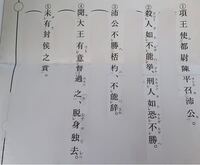 ①項王使都尉陳平召沛公。
②殺人如不能挙、刑人如恐不勝。
③沛公不勝桮杓、不能辞。
④聞大王有意督過之、脱身独去。
⑤未有封侯之賞。